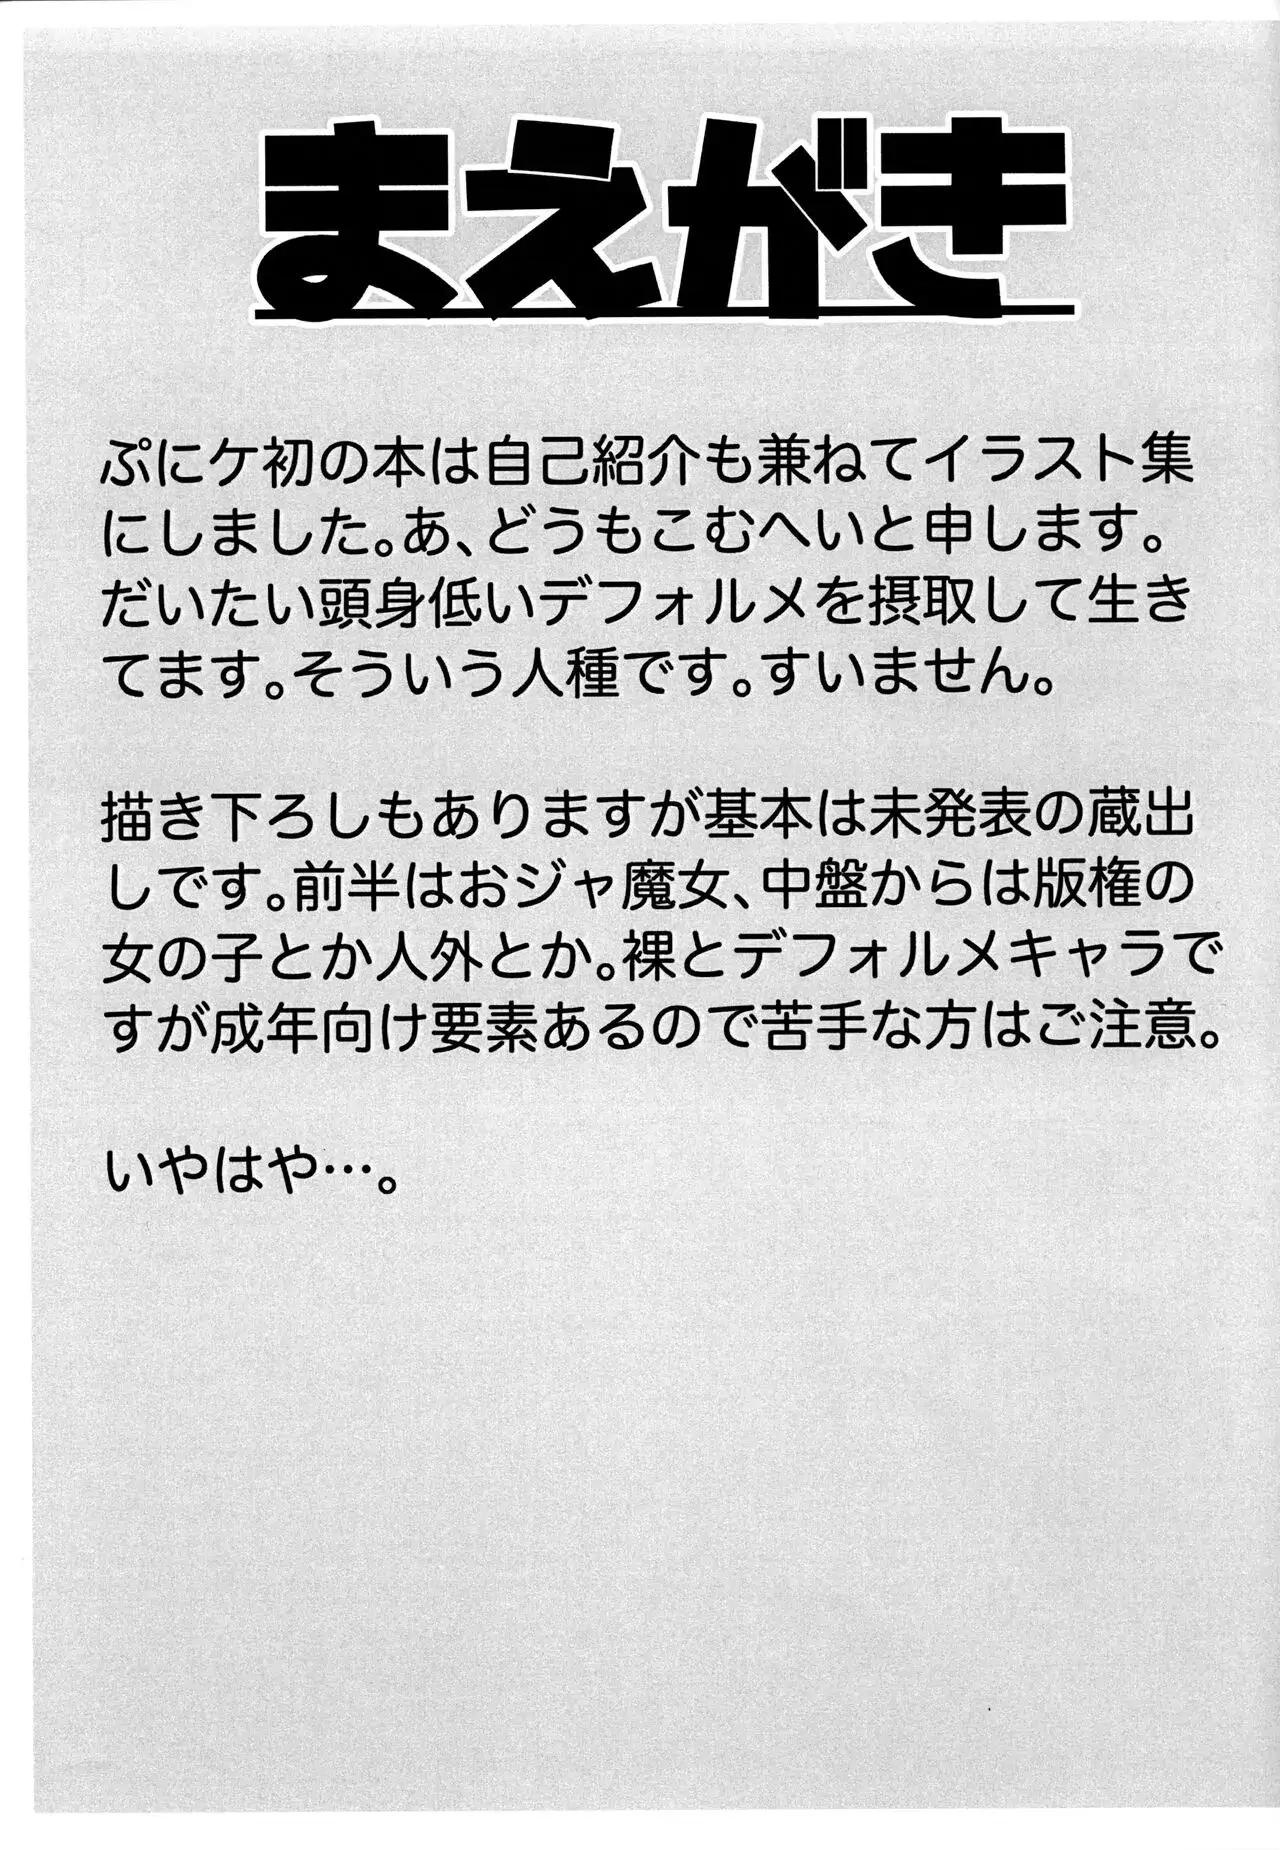 まえがき
ぷにケ初の本は自己紹介も兼ねてイラスト集
にしました。あ、どうもこむへいと申します。
だいたい頭身低いデフォルメを摂取して生き
てます。そういう人種です。すいません。
描き下ろしもありますが基本は未発表の蔵出
しです。前半はおジャ魔女、中盤からは版権の
女の子とか人外とか。裸とデフォルメキャラで
すが成年向け要素あるので苦手な方はご注意。
いやはや…。